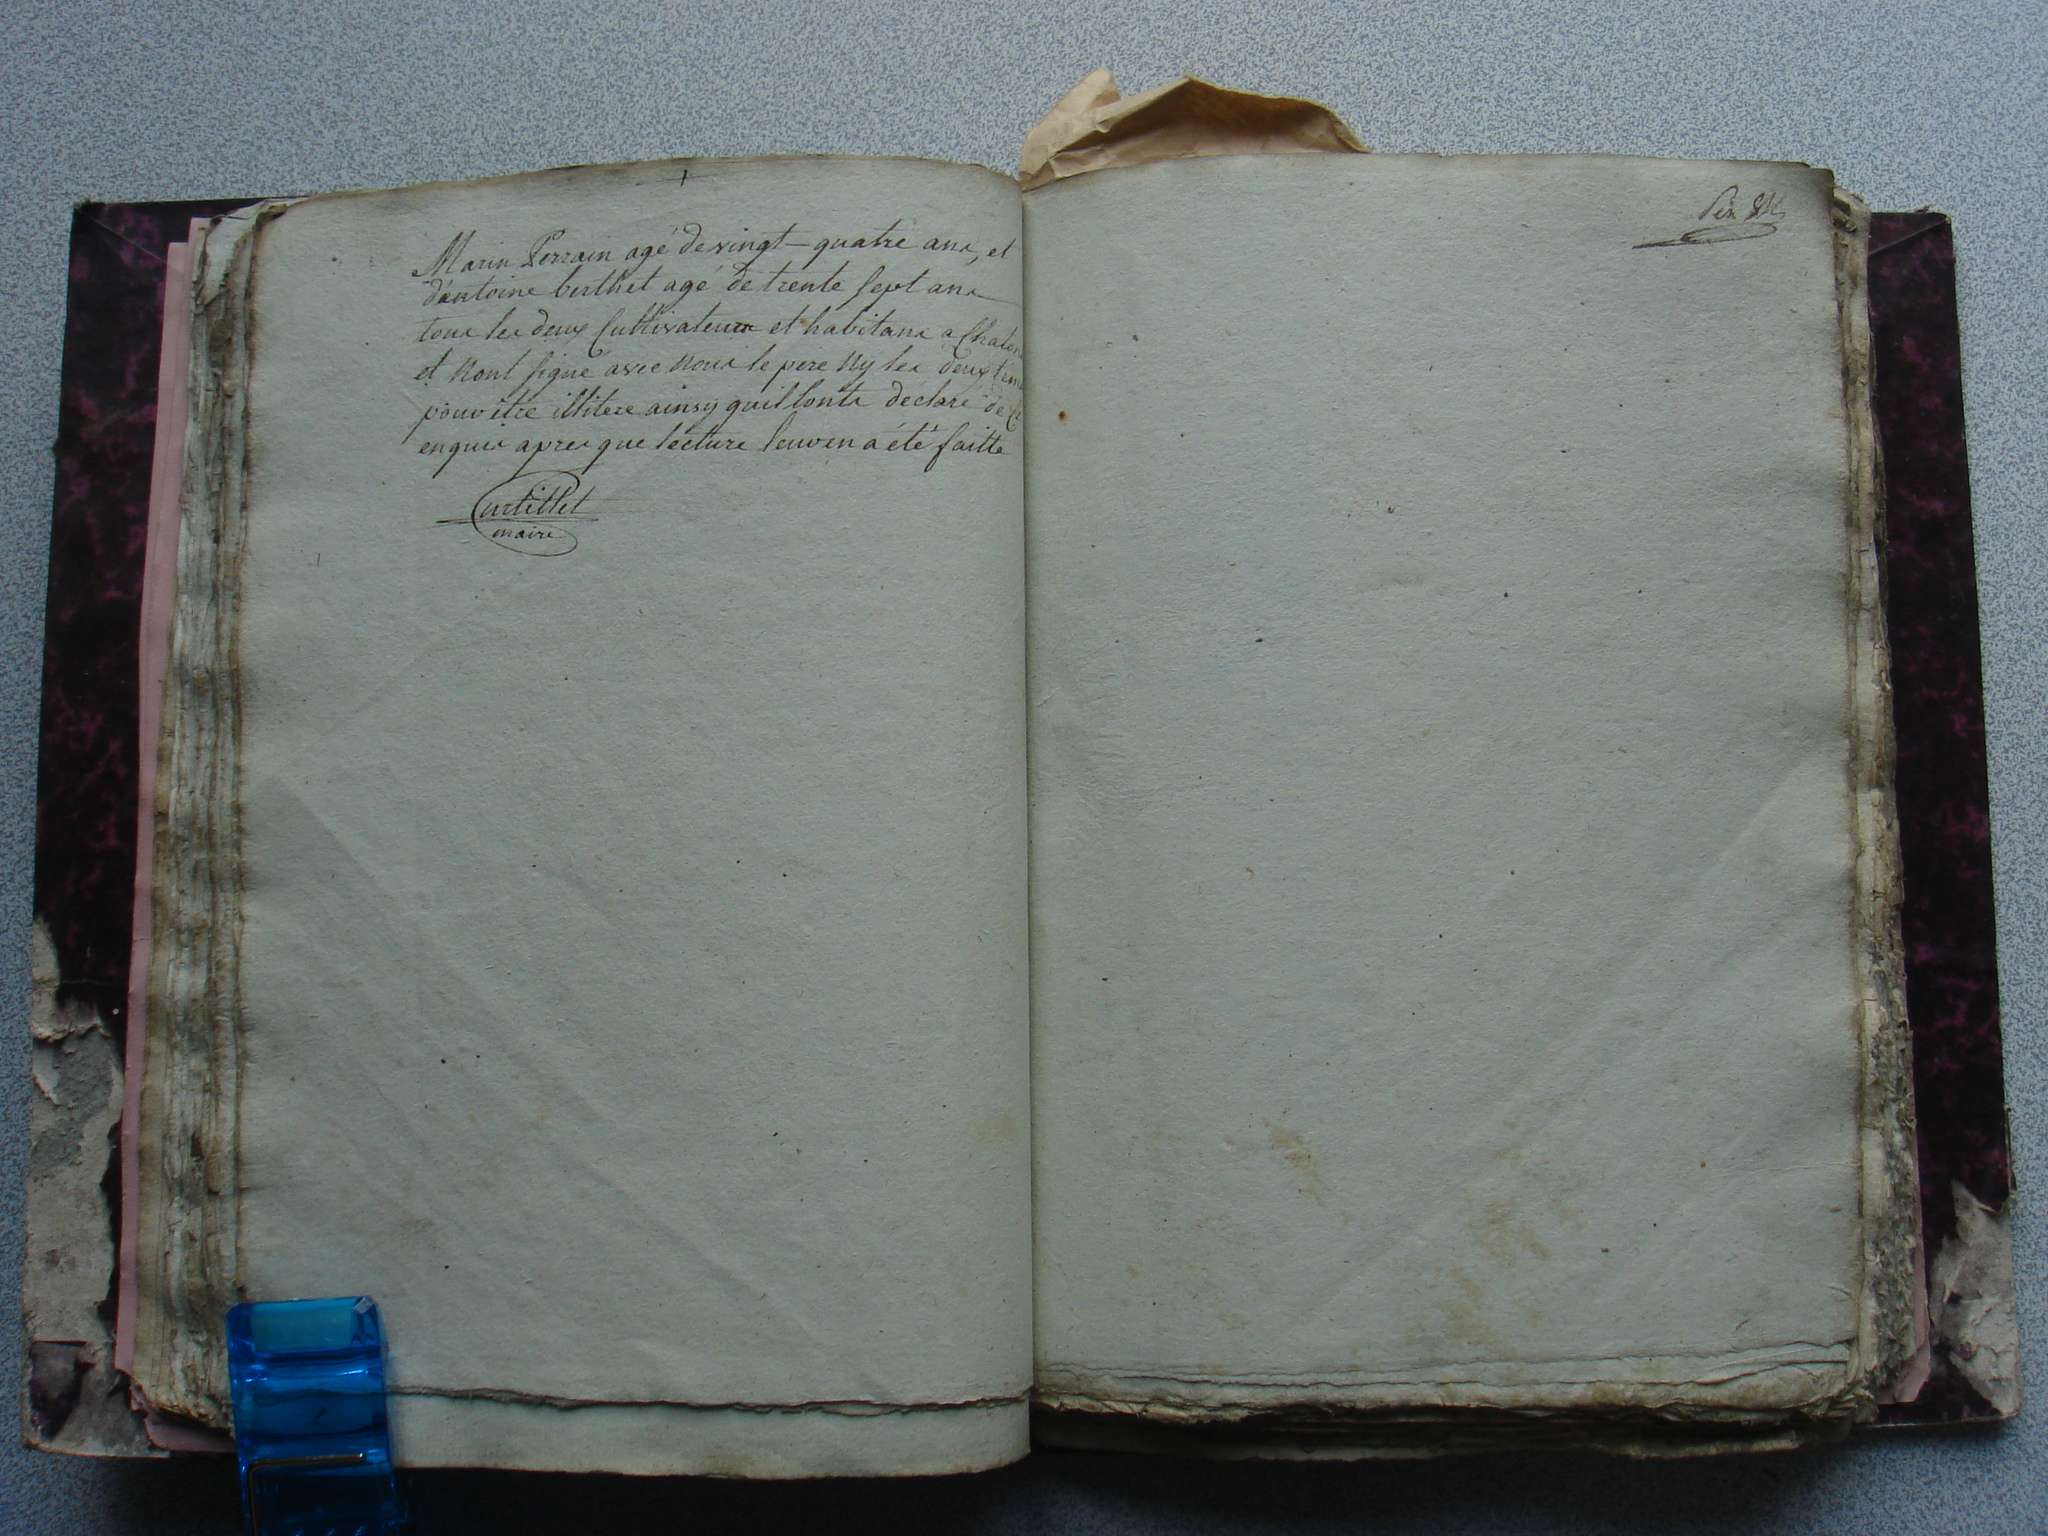 Marin Perrain agé de vingt-quatre ans, et
d'antoine berthet agé de trente sept ans
tous les deux Cultivateurs et habitans a
et n'ont signé avec nous le pere ny les deux
pour etre illitere ainsy quil lonts déclaré de ce
enquis apres que lecture leur en a été faitte
Curtillet
maire